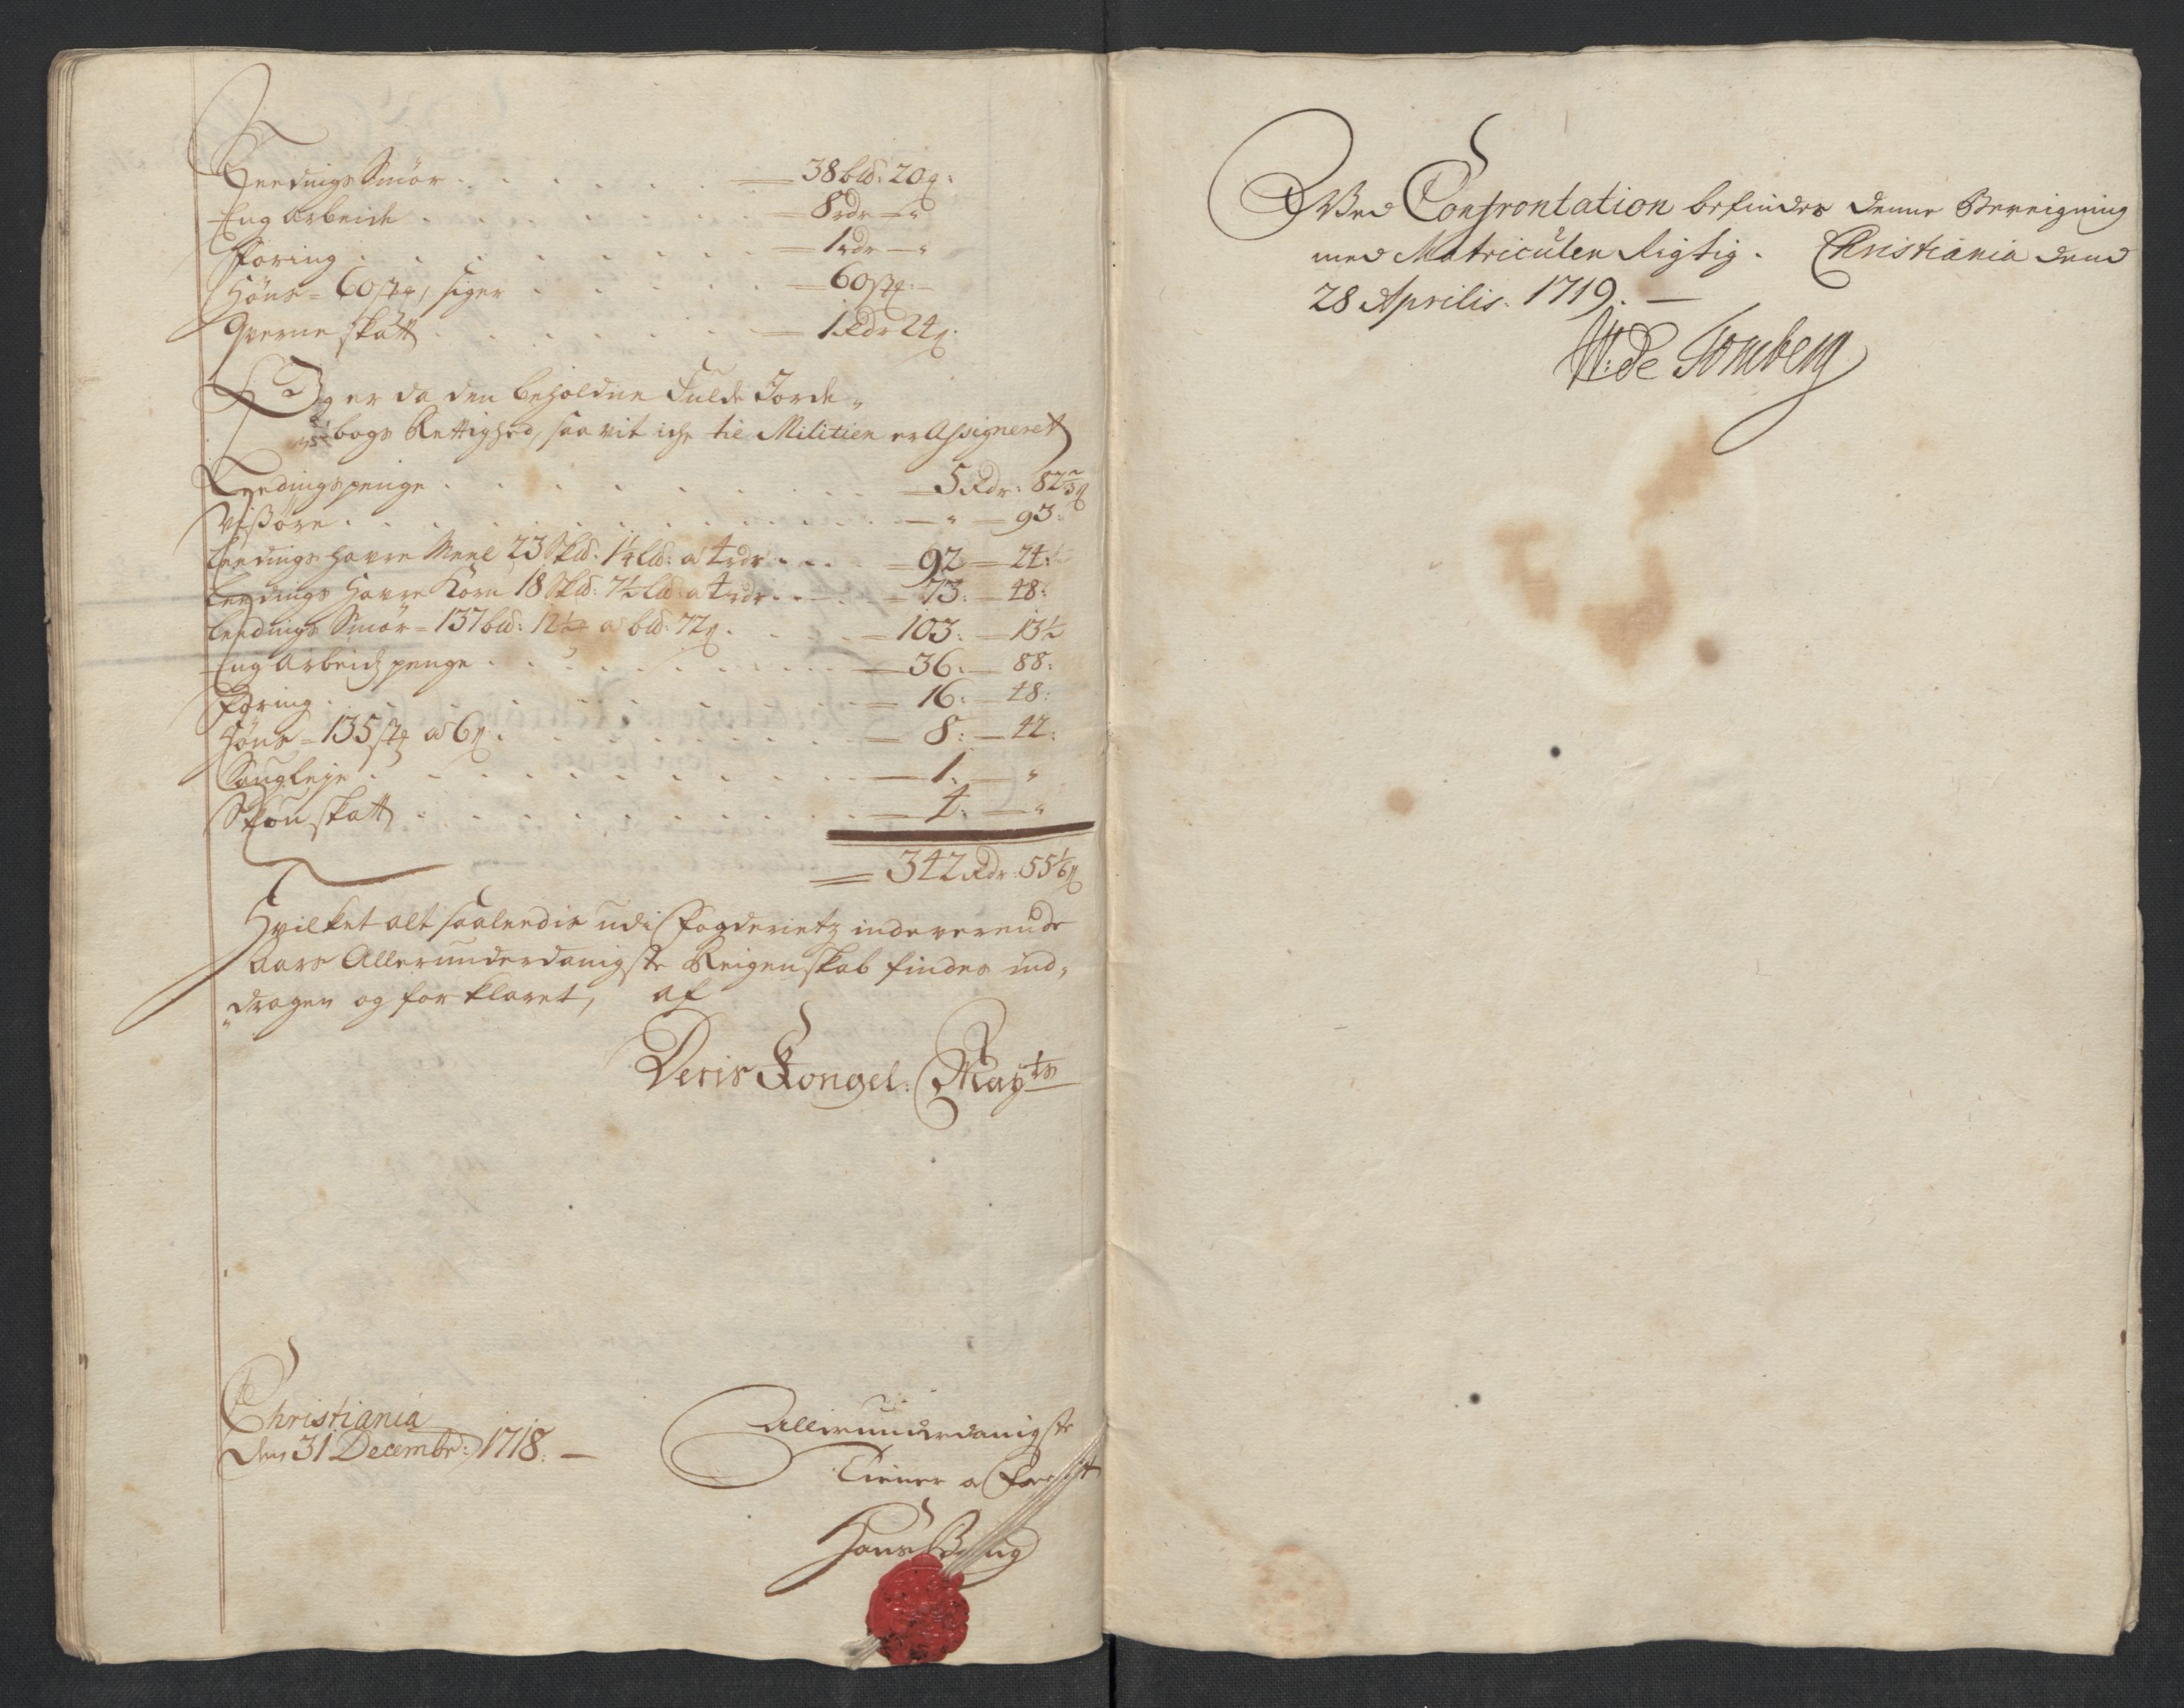 Leedings Smør . . . . . . = 38 bld: 20 ₰:
Eng Arbeide . . . . . . . = 8 rdr — "
Foring . . . . . . . . = 1 rdr — "
Høns = 60 stk, siger . . . . . = 60 stk: —
Qverne skatt . . . . . . . = 1 Rdr 24 ß.
Og er da den beholdne Fulde Jorde„
„bogs Rettighed, saa vit iche til Militien er Assigneret
Leedingspenge . . . . . . . = 5 Rdr: 82⅔ ß
Visøre . . . . . . . . . — " — 93:
Leedings Havre Meel 23 Skd: 1¼ Ld: a 4 rdr . . . = 92 — 24:
Leedings Havre Korn 18 Skd: 7½ Ld: a 4 rdr . . . = 73: — 48:
Leedings Smør = 137 bld: 12½ a bld: 72 ß . . . = 103: — 13½
Eng Arbeids penge . . . . . . . = 36: — 88:
Foring . . . . . . . . . = 16: — 48:
Høns = 135 stk a 6 ß . . . . . . . = 8: — 42:
Saugleje . . . . . . . . . — 1. — "
Skou skatt . . . . . . . . = 4: — "
= 342 Rdr: 55⅙ ß
Hvilket alt saaledis udi Fogderietz indeverende
Aars Allerunderdanigste Reigenskab findes ind„
„dragen og forklaret, af
Deris Kongel: Mayts
Christiania
den 31 Decembr: 1718. —
Allerunderdanigste
Tiener
Hans Bing
Ved Confrontation befindes denne Bereigning
med Matriculen Rigtig. Christiania dend
28 Aprilis. 1719. —
W: de Tomberg